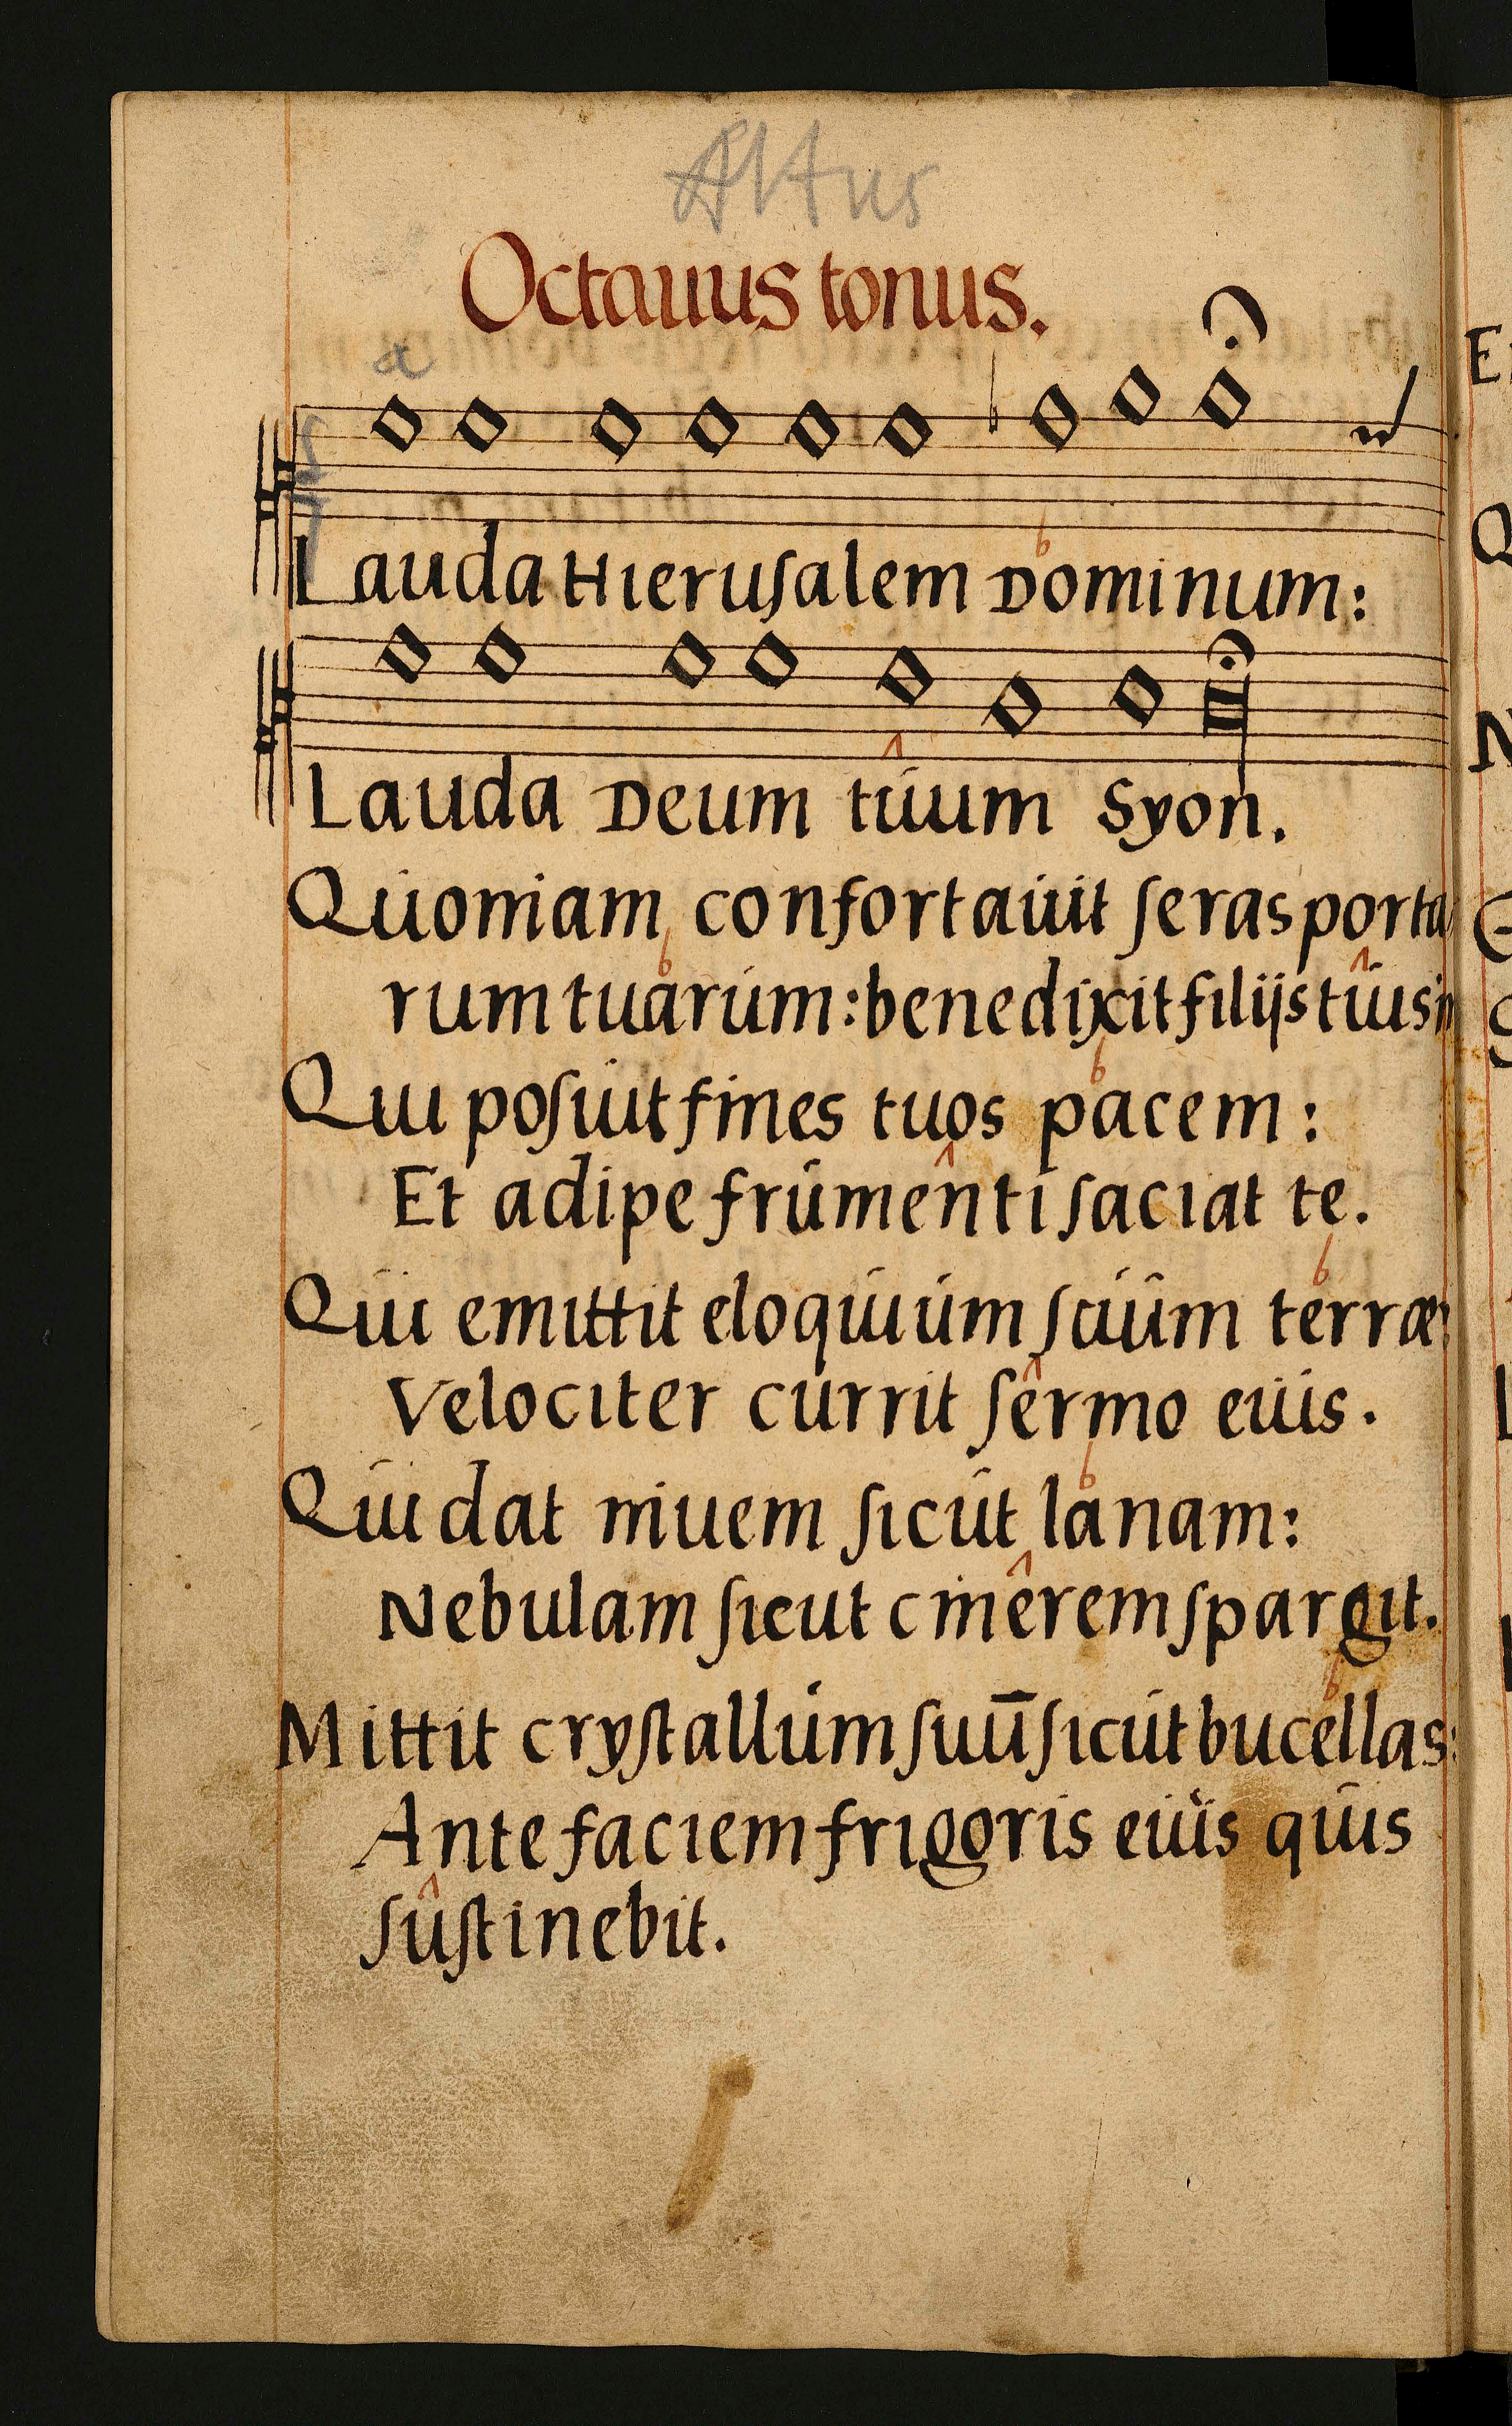 Altus
Octauus tonus.
a
Lauda Hieruſalem Dominum:
Lauda Deum tuum Syon.
Quoniam confortauit ſeras porta
rum tuarum: benedixit filijs tuis in
Qui poſuit fines tuos pacem:
Et adipe frumenti ſaciat te.
Qui emittit eloquium ſuum terræ:
Velociter currit ſermo eius.
Qui dat niuem ſicut lanam:
Nebulam ſicut cinerem ſpargit.
Mittit cryſtallum ſuū ſicut bucellas:
Ante faciem frigoris eius quis
ſuſtinebit.